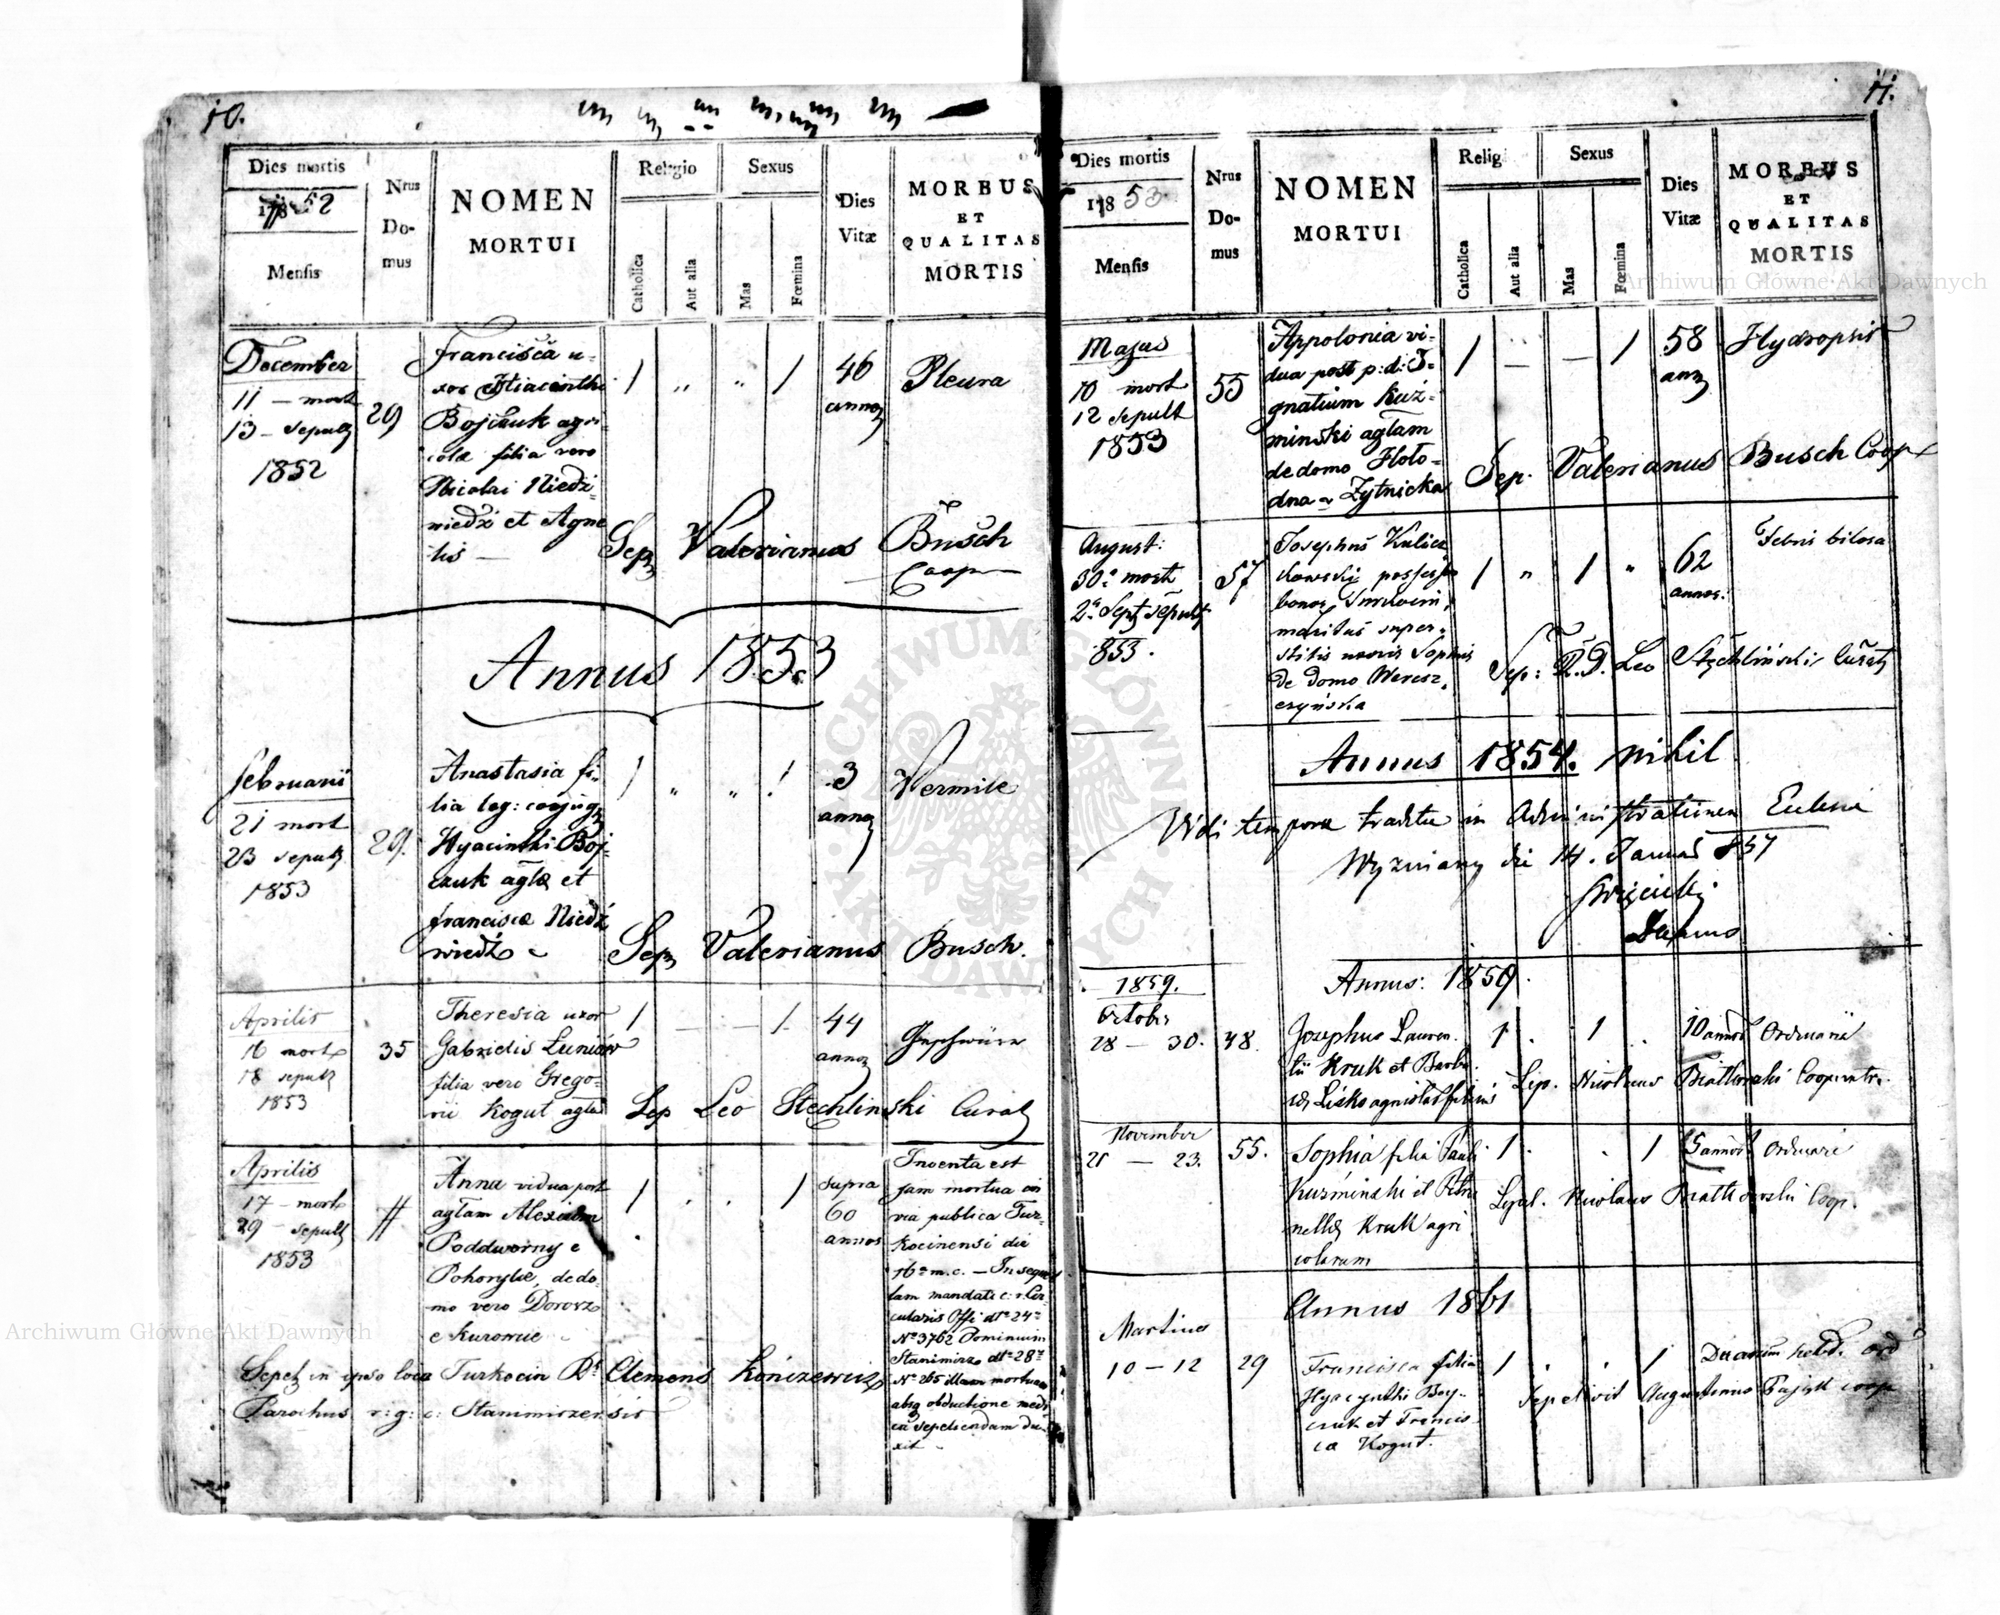 10.
Dies mortis
1852
Mensis
Nrus
Do-
mus
NOMEN
MORTUI
Religio
Catholica
Aut alia
Sexus
Mas
Fœmina
Dies
Vitæ
MORBUS
ET
QUALITAS
MORTIS
December
11 — mort
13 — sepult
1852
29
Francisca u-
xor Hiacinthi
Bojczuk agri-
colæ filia vero
Nicolai Niedź-
niedź et Agne-
tis —
1 " " 1
46
annor
Pleura
Sep Valerianus Busch
Coop
Annus 1853
Februarii
21 mort
23 sepult
1853
29.
Anastasia fi-
lia leg: conjug
Hyacinthi Boj-
czuk agłæ et
Franciscæ Niedź
wiedź
1 " " 1
3
annor
Vermile
Sep Valerianus Busch.
Aprilis
16 mort
18 sepult
1853
35
Theresia uxor
Gabrielis Łuniów
filia vero Grego-
rii Kogut
1 — — 1
44
annor
Sep Leo Stechlinski Curat
Aprilis
17 — mort
29 — sepult
1853
Anna vidua post
agłam Alexium
Poddworny e
Pohorylce, de do-
mo vero Dorosz
e Kurowice
1 . . 1
supra
60
annos
Inventa est
jam mortua in
via publica Tur-
kocinensi die
16a m. c. — In seque
lam mandati c: r: Cir-
cularis Offi dto 24a
No 3762 Dominium
Stanimirz dto 28a
No 265 illam mortuam
absq obductione medi
ca sepeliendam du-
xit
Sepel in ipso loco Turkocin Rs Clemens
Parochus r: g: c: Stanimirzensis
11.
Dies mortis
1853
Mensis
Nrus
Do-
mus
NOMEN
MORTUI
Religi
Catholica
Aut alia
Sexus
Mas
Fœmina
Dies
Vitæ
MORBUS
ET
QUALITAS
MORTIS
Majus
10 mort
12 sepult
1853
55
Appolonia vi-
dua post p: d: I-
gnatium Kuź-
minski agłam
de domo Hoło-
dna Zytnicka
1 — — 1
58
ann
Hydropsis
Sep. Valerianus Busch Coop
August:
30a mort
2a Sept sepult
853.
57
Josephus Kulicz
kowski possessor
bonor
maritus super-
stitis uxoris Sophiæ
de domo Weresz-
czyńska
1 " 1 "
62
annor.
Febris biliosa
Sep: R. D. Leo Stechliński Curat
Annus 1854. nihil
Vidi tempore traditæ in Administrationem Eclesiæ
Wyzniany die 14. Januar 857
Annus: 1859.
1859.
October
28 — 30.
48.
Josephus Lauren-
tii Kruk et Barba-
1 . 1 .
10 annor
Ordinaria
Sep. Nicolaus Cooperatr.
November
21 — 23.
55.
Sophia filia Pauli
Kuzminski et Petro
nellæ Kruk agri
colarum
1 . . 1
5 annor
Ordinari
Sepel. Nicolaus Coop.
Annus 1861
Martius
10 — 12
29
Francisca filia
Hyacynthi Boy-
czuk et Francis
ca Kogut.
1 . . 1
ord
Sepelivit Augustinus Pajęk coop
Archiwum Główne Akt Dawnych
Archiwum Główne Akt Dawnych
ARCHIWUM GŁÓWNE AKT DAWNYCH